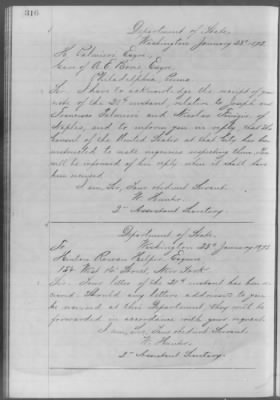 316
Department of State,
Washington January 28th 1873.
H. Palmieri Esqre,
Care of A. E. Esqre,
Philadelphia, Penna.
Sir: I have to acknowledge the receipt of your
note of the 21st instant, relative to Joseph and
Francesco Palmieri and Nicolas of
Naples, and to inform you in reply that the
Consul of the United States at that City has been
instructed to make inquiries respecting them. You
will be informed of his reply when it shall have
been received.
I am, Sir, Your obedient Servant.
W. Hunter.
2nd Assistant Secretary.
Department of State.
To, Washington 28th January 1873
Hinton Rowan Helper, Esquire
West Street, New York.
Sir: Your letter of the instant has been re-
ceived. Should any letters addressed to you
be received at this Department they will be
forwarded in accordance with your request.
I am, Sir, Your obedient Servant,
W. Hunter.
2nd Assistant Secretary.